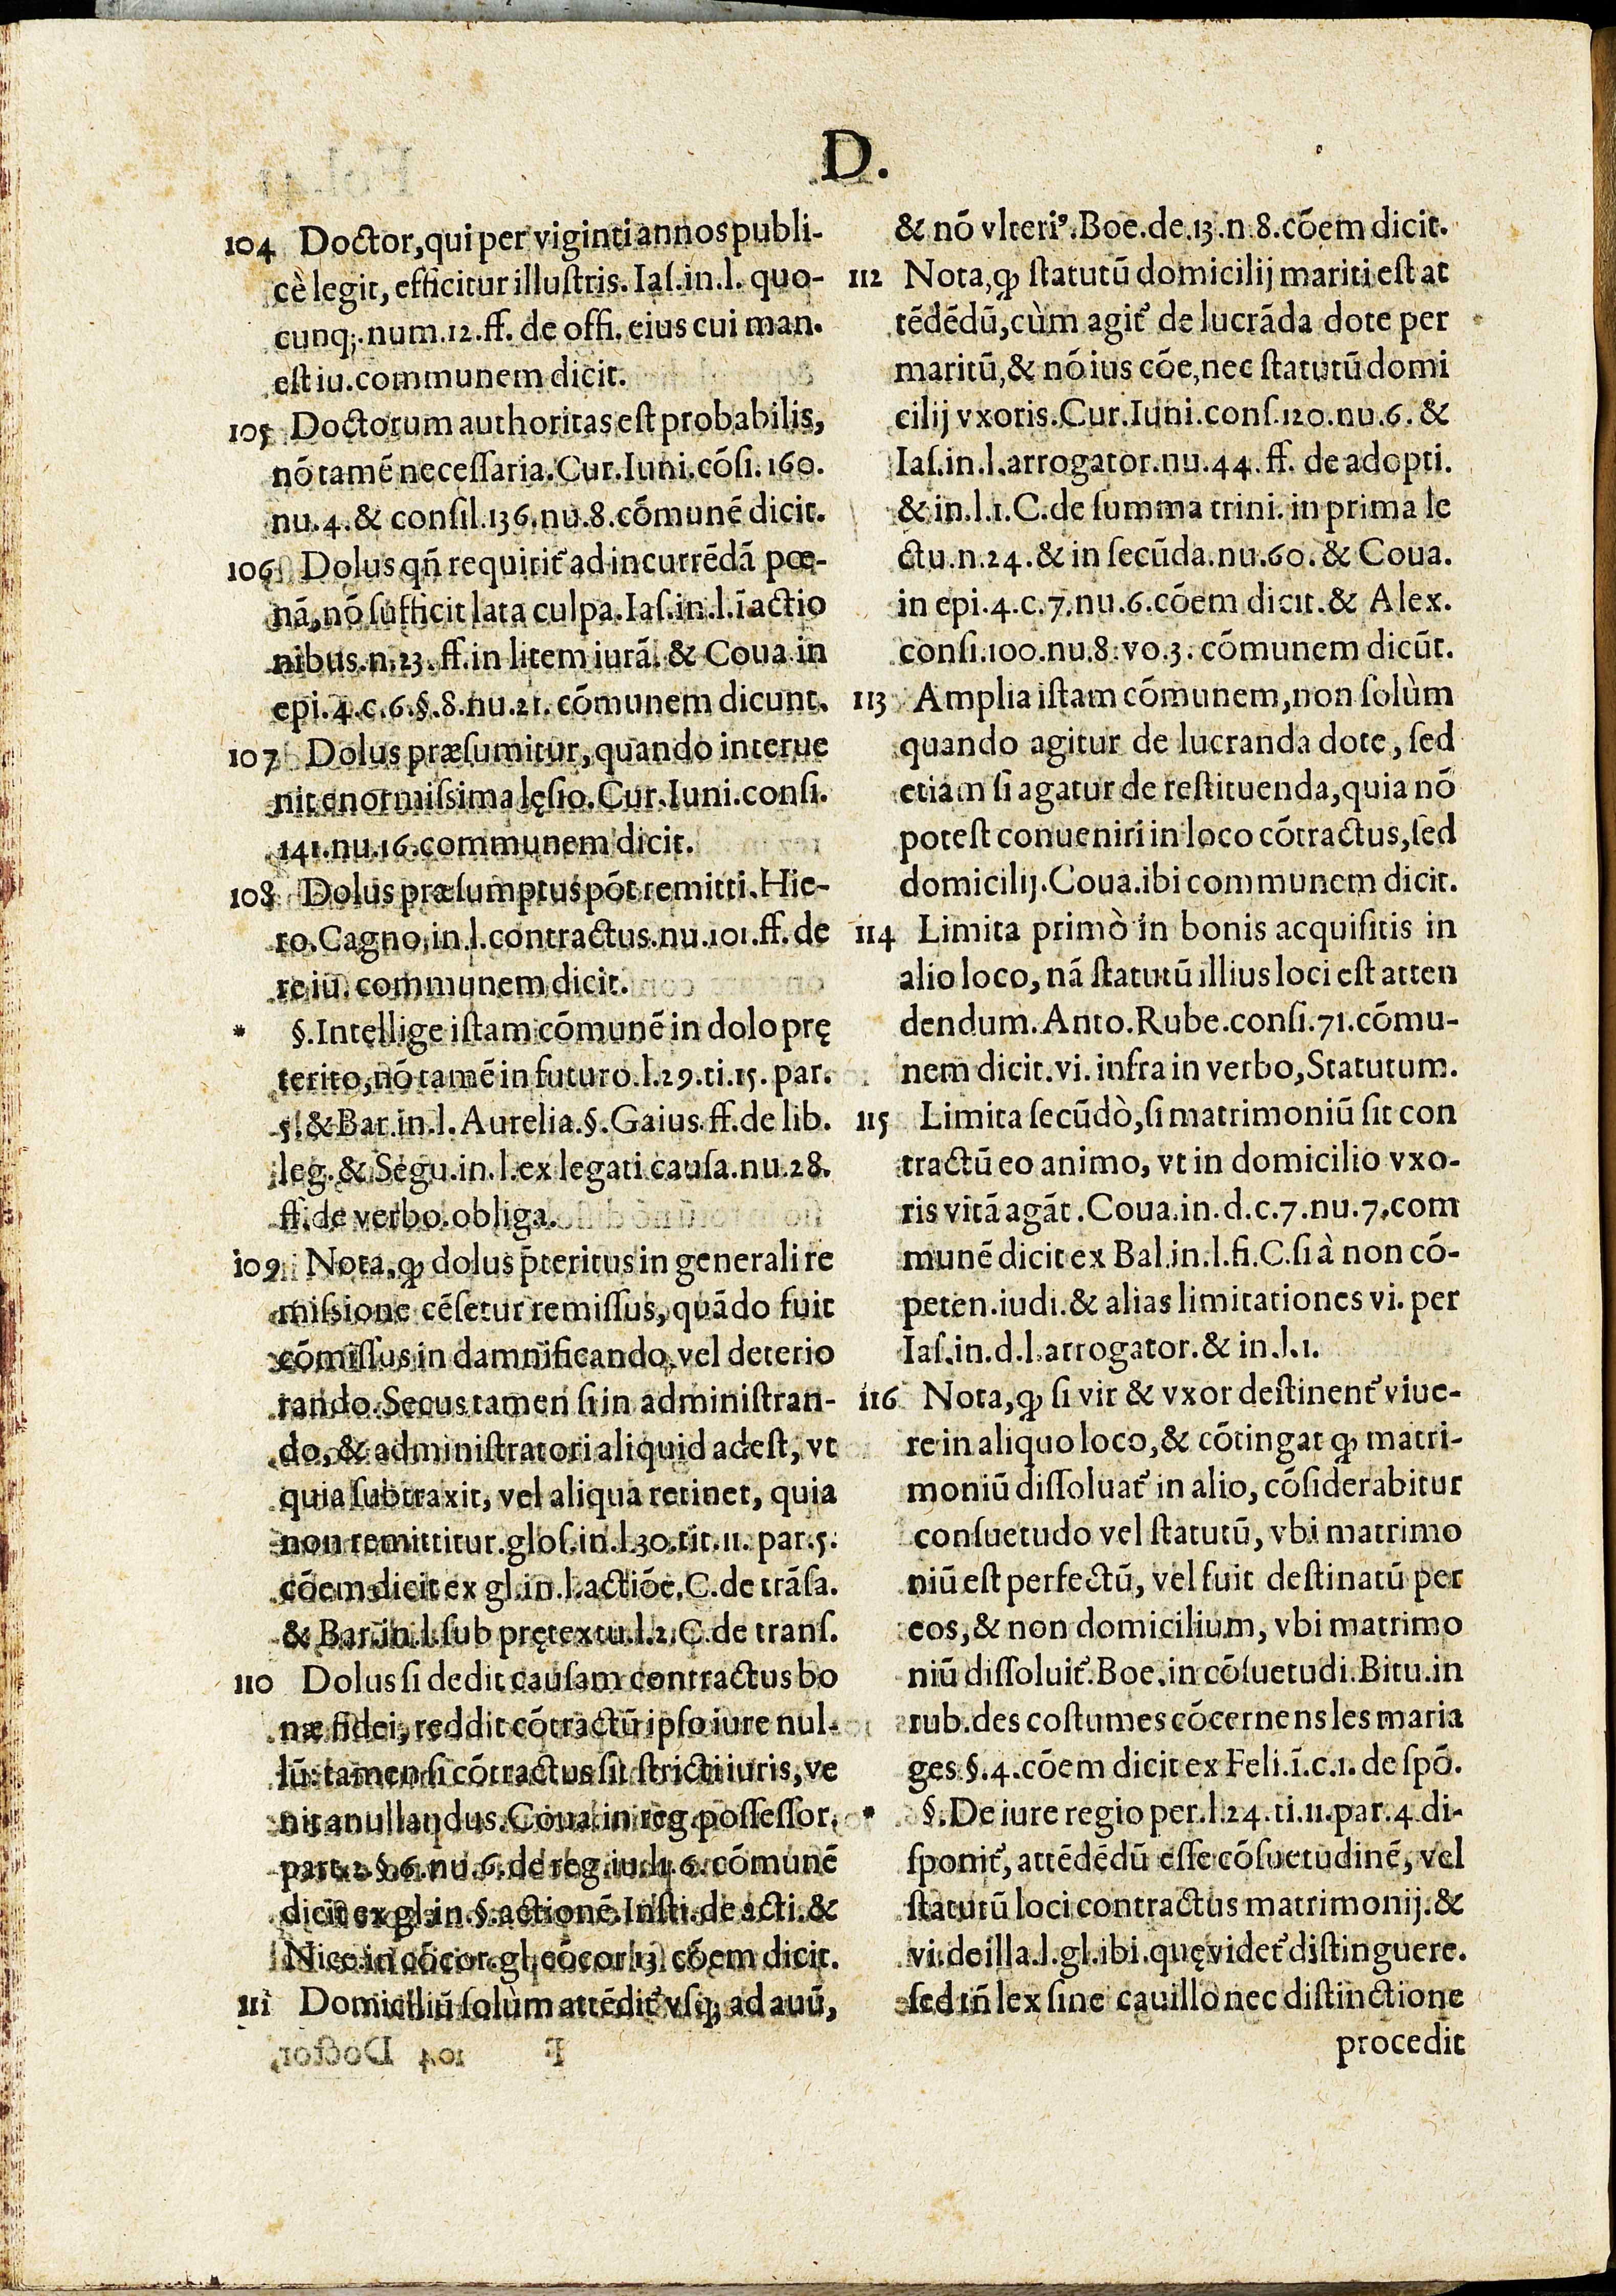 D.
104 Doctor, qui per viginti annos publi-
cè legit, efficitur illustris. Iaſ. in. l. quo-
cunq;. num. 12. ff. de offi. eius cui man.
est iu. communem dicit.
105 Doctorum authoritas est probabilis,
nō tamē necessaria. Cur. Iuni. cōsi. 160.
nu. 4. & consil. 136. nu. 8. cōmunē dicit.
106 Dolus qñ requirit᷑ ad incurrēdā pœ-
nā, nō sufficit lata culpa. Iaſ. in. l. ī actio
nibus. n. 23. ff. in litem iurā. & Coua. in
epi. 4. c. 6. §. 8. nu. 21. cōmunem dicunt.
107 Dolus præsumitur, quando interue
nit enormissima lęsio. Cur. Iuni. consi.
141. nu. 16. communem dicit.
108 Dolus præsumptus pōt remitti. Hie-
ro. Cagno. in. l. contractus. nu. 101. ff. de
re iu. communem dicit.
* §. Intellige istam cōmunē in dolo prę
terito, nō tamē in futuro. l. 29. ti. 15. par.
5. & Bar. in. l. Aurelia. §. Gaius. ff. de lib.
leg. & Segu. in. l. ex legati causa. nu. 28.
ff. de verbo. obliga.
109 Nota, ꝙ dolus p̄teritus in generali re
missione cēsetur remissus, quādo fuit
cōmissus in damnificando, vel deterio
rando. Secus tamen si in administran-
do, & administratori aliquid adest, vt
quia subtraxit, vel aliqua retinet, quia
non remittitur. glos. in. l. 30. tit. 11. par. 5.
cōem dicit ex gl. in. l. actiōe. C. de trāsa.
& Bar. in. l. sub prętextu. l. 2. C. de trans.
110 Dolus si dedit causam contractus bo
næ fidei, reddit cōtractū ipso iure nul-
lū: tamen si cōtractus sit stricti iuris, ve
nit anullandus. Coua. in reg. possessor.
part. 2. §. 6. nu. 6. de reg. iu. l. 6. cōmunē
dicit ex gl. in. §. actionē. Insti. de acti. &
Nico. in cōcor. gl. cōcor. 13. cōem dicit.
111 Domiciliū solùm attēdit᷑ vsq; ad auū,
& nō vlteri⁹. Boe. de. 13. n. 8. cōem dicit.
112 Nota, ꝙ statutū domicilij mariti est at
tēdēdū, cùm agit᷑ de lucrāda dote per
maritū, & nō ius cōe, nec statutū domi
cilij vxoris. Cur. Iuni. cons. 120. nu. 6. &
Iaſ. in. l. arrogator. nu. 44. ff. de adopti.
& in. l. 1. C. de summa trini. in prima le
ctu. n. 24. & in secūda. nu. 60. & Coua.
in epi. 4. c. 7. nu. 6. cōem dicit. & Alex.
consi. 100. nu. 8. vo. 3. cōmunem dicūt.
113 Amplia istam cōmunem, non solùm
quando agitur de lucranda dote, sed
etiam si agatur de restituenda, quia nō
potest conueniri in loco cōtractus, sed
domicilij. Coua. ibi communem dicit.
114 Limita primò in bonis acquisitis in
alio loco, nā statutū illius loci est atten
dendum. Anto. Rube. consi. 71. cōmu-
nem dicit. vi. infra in verbo, Statutum.
115 Limita secūdò, si matrimoniū sit con
tractū eo animo, vt in domicilio vxo-
ris vitā agāt. Coua. in. d. c. 7. nu. 7. com
munē dicit ex Bal. in. l. fi. C. si à non cō-
peten. iudi. & alias limitationes vi. per
Iaſ. in. d. l. arrogator. & in. l. 1.
116 Nota, ꝙ si vir & vxor destinent᷑ viue-
re in aliquo loco, & cōtingat ꝙ matri-
moniū dissoluat᷑ in alio, cōsiderabitur
consuetudo vel statutū, vbi matrimo
niū est perfectū, vel fuit destinatū per
eos, & non domicilium, vbi matrimo
niū dissoluit᷑. Boe. in cōsuetudi. Bitu. in
rub. des costumes cōcernens les maria
ges §. 4. cōem dicit ex Feli. ī. c. 1. de spō.
* §. De iure regio per. l. 24. ti. 11. par. 4. di-
sponit᷑, attēdēdū esse cōsuetudinē, vel
statutū loci contractus matrimonij. &
vi. de illa. l. gl. ibi. quę videt᷑ distinguere.
sed tñ lex sine cauillo nec distinctione
procedit